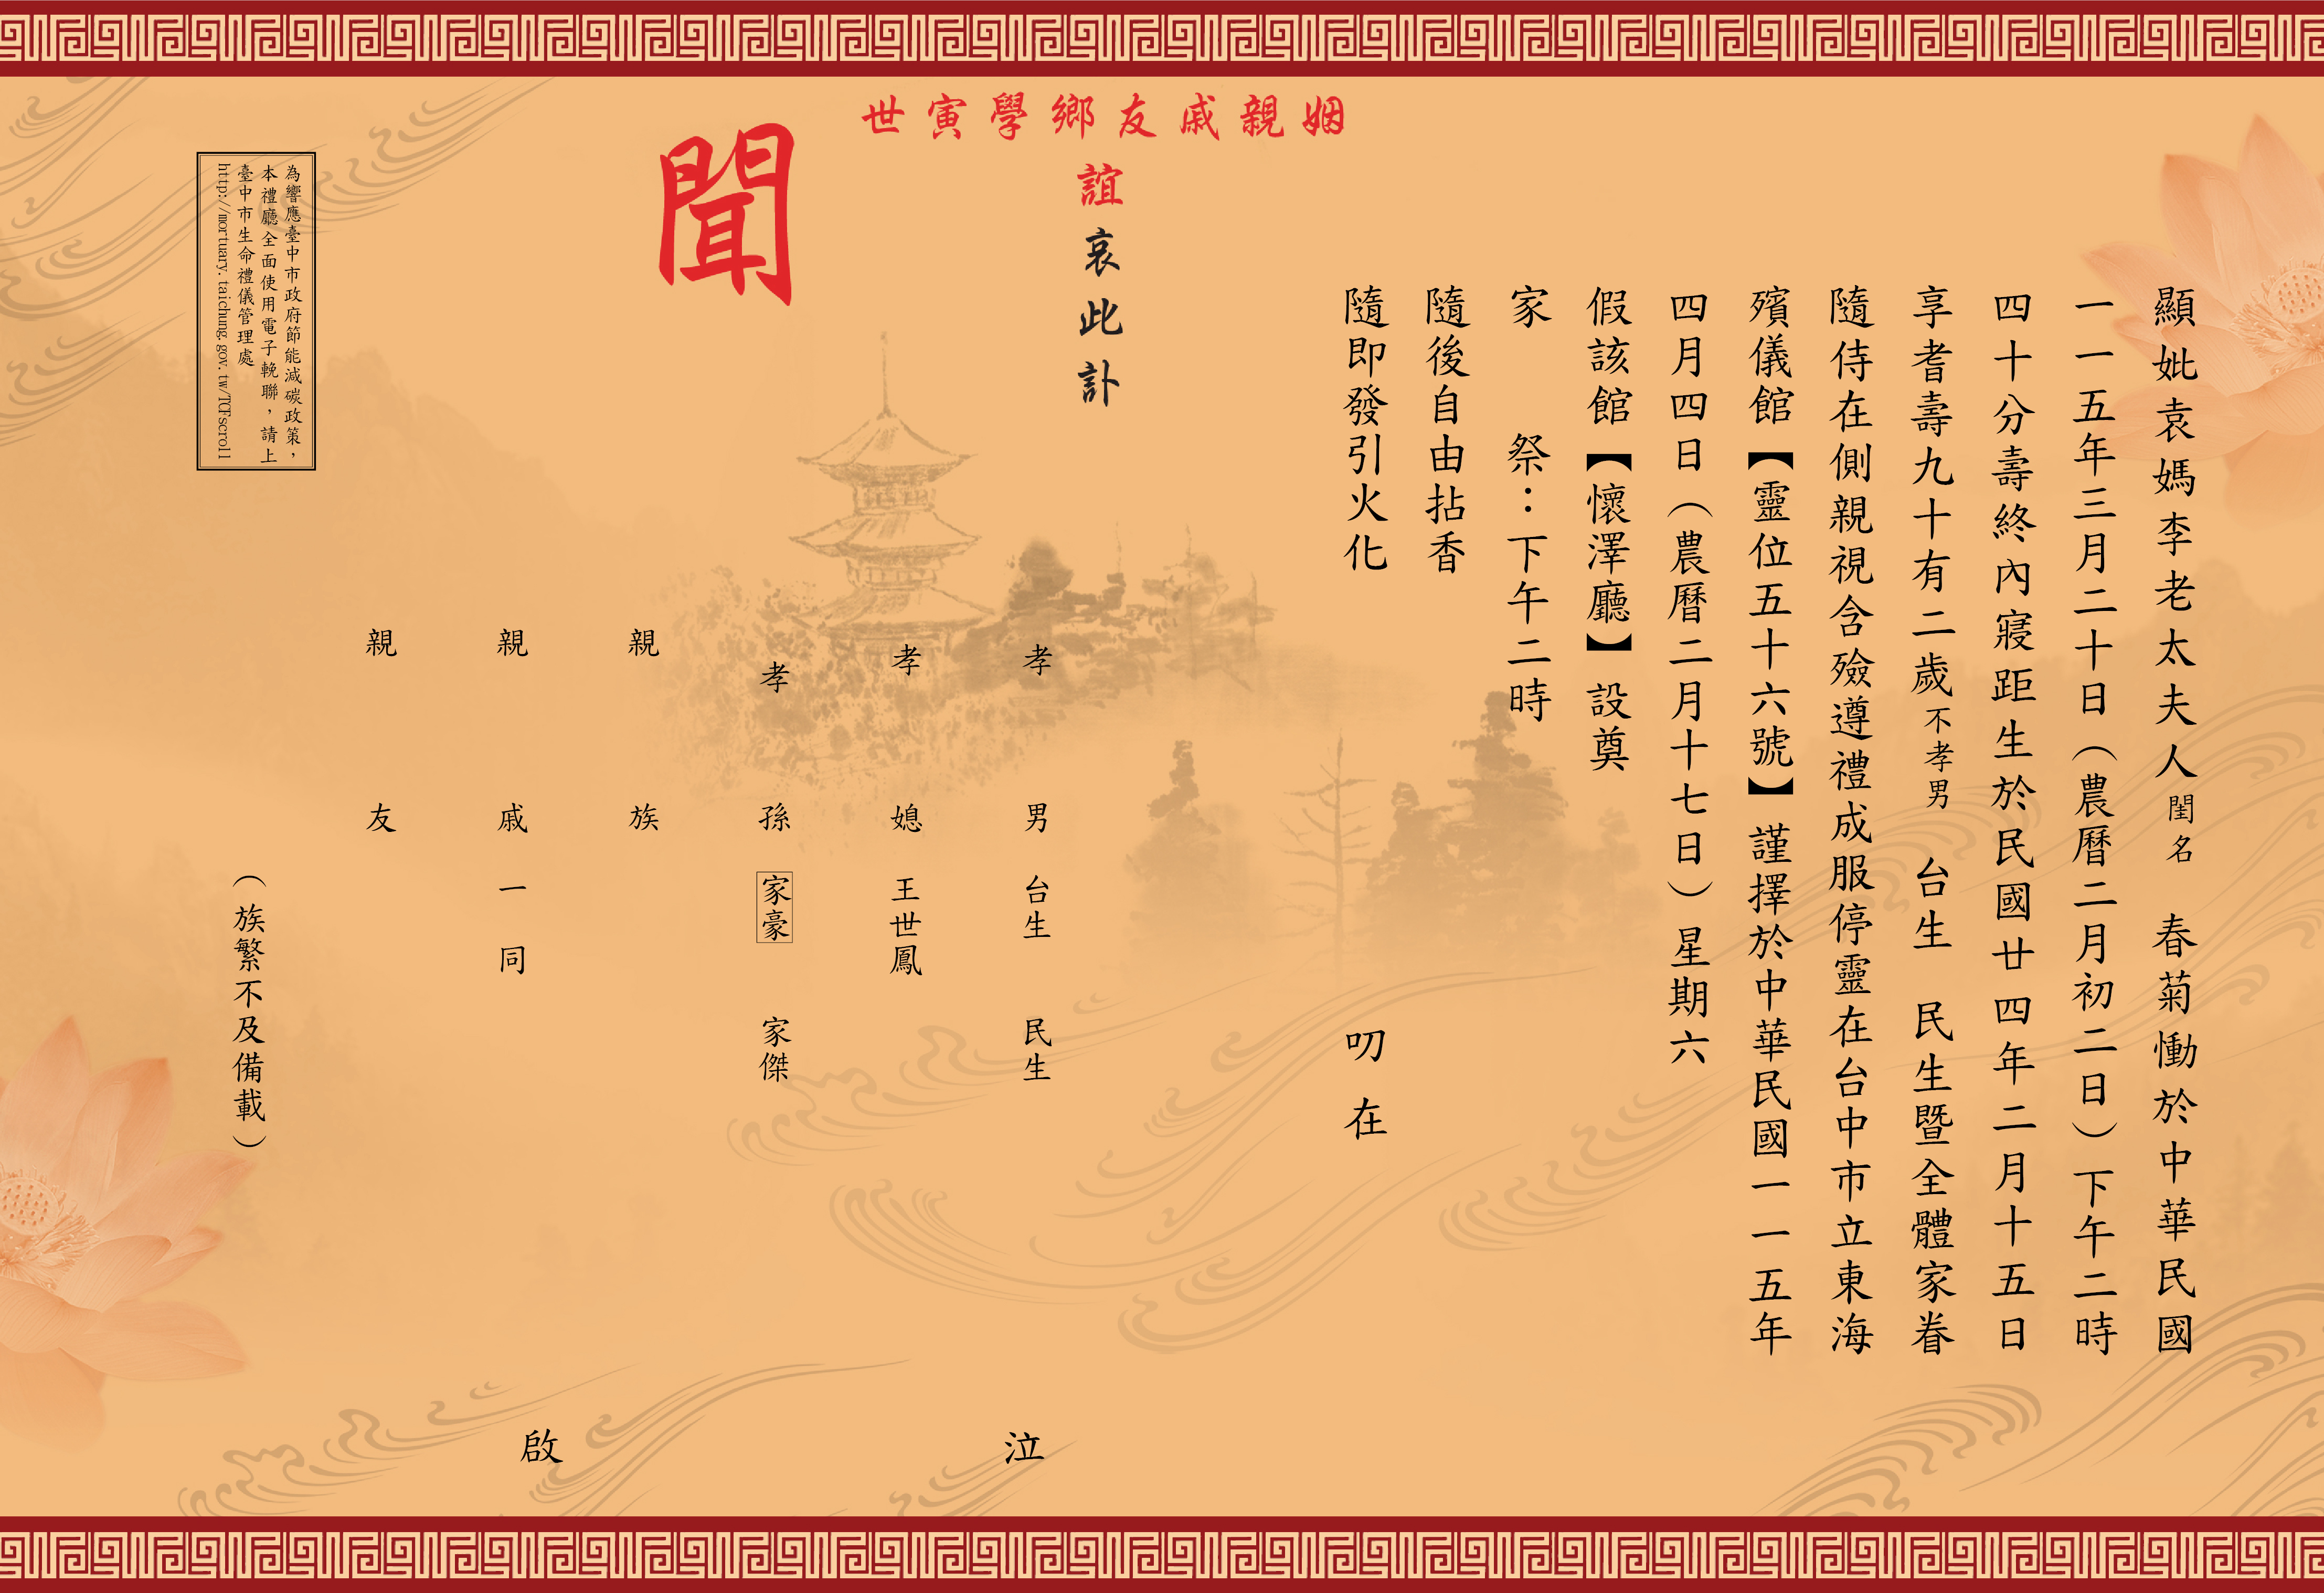 顯妣袁媽李老太夫人閨名　春菊慟於中華民國
一一五年三月二十日（農曆二月初二日）下午二時
四十分壽終內寢距生於民國廿四年二月十五日
享耆壽九十有二歲不孝男　台生　民生暨全體家眷
隨侍在側親視含殮遵禮成服停靈在台中市立東海
殯儀館【靈位五十六號】謹擇於中華民國一一五年
四月四日（農曆二月十七日）星期六
假該館【懷澤廳】設奠
家　　祭：下午二時
隨後自由拈香
隨即發引火化　　叨在
姻親戚友鄉學寅世
誼哀此訃
聞
孝　男　台生　民生　泣
孝　媳　王世鳳
孝　孫　家豪　家傑
親　族
親　戚　一　同　啟
親　友
（族繁不及備載）
為響應臺中市政府節能減碳政策，
本禮廳全面使用電子輓聯，請上
臺中市生命禮儀管理處
http://mortuary.taichung.gov.tw/TCFscroll